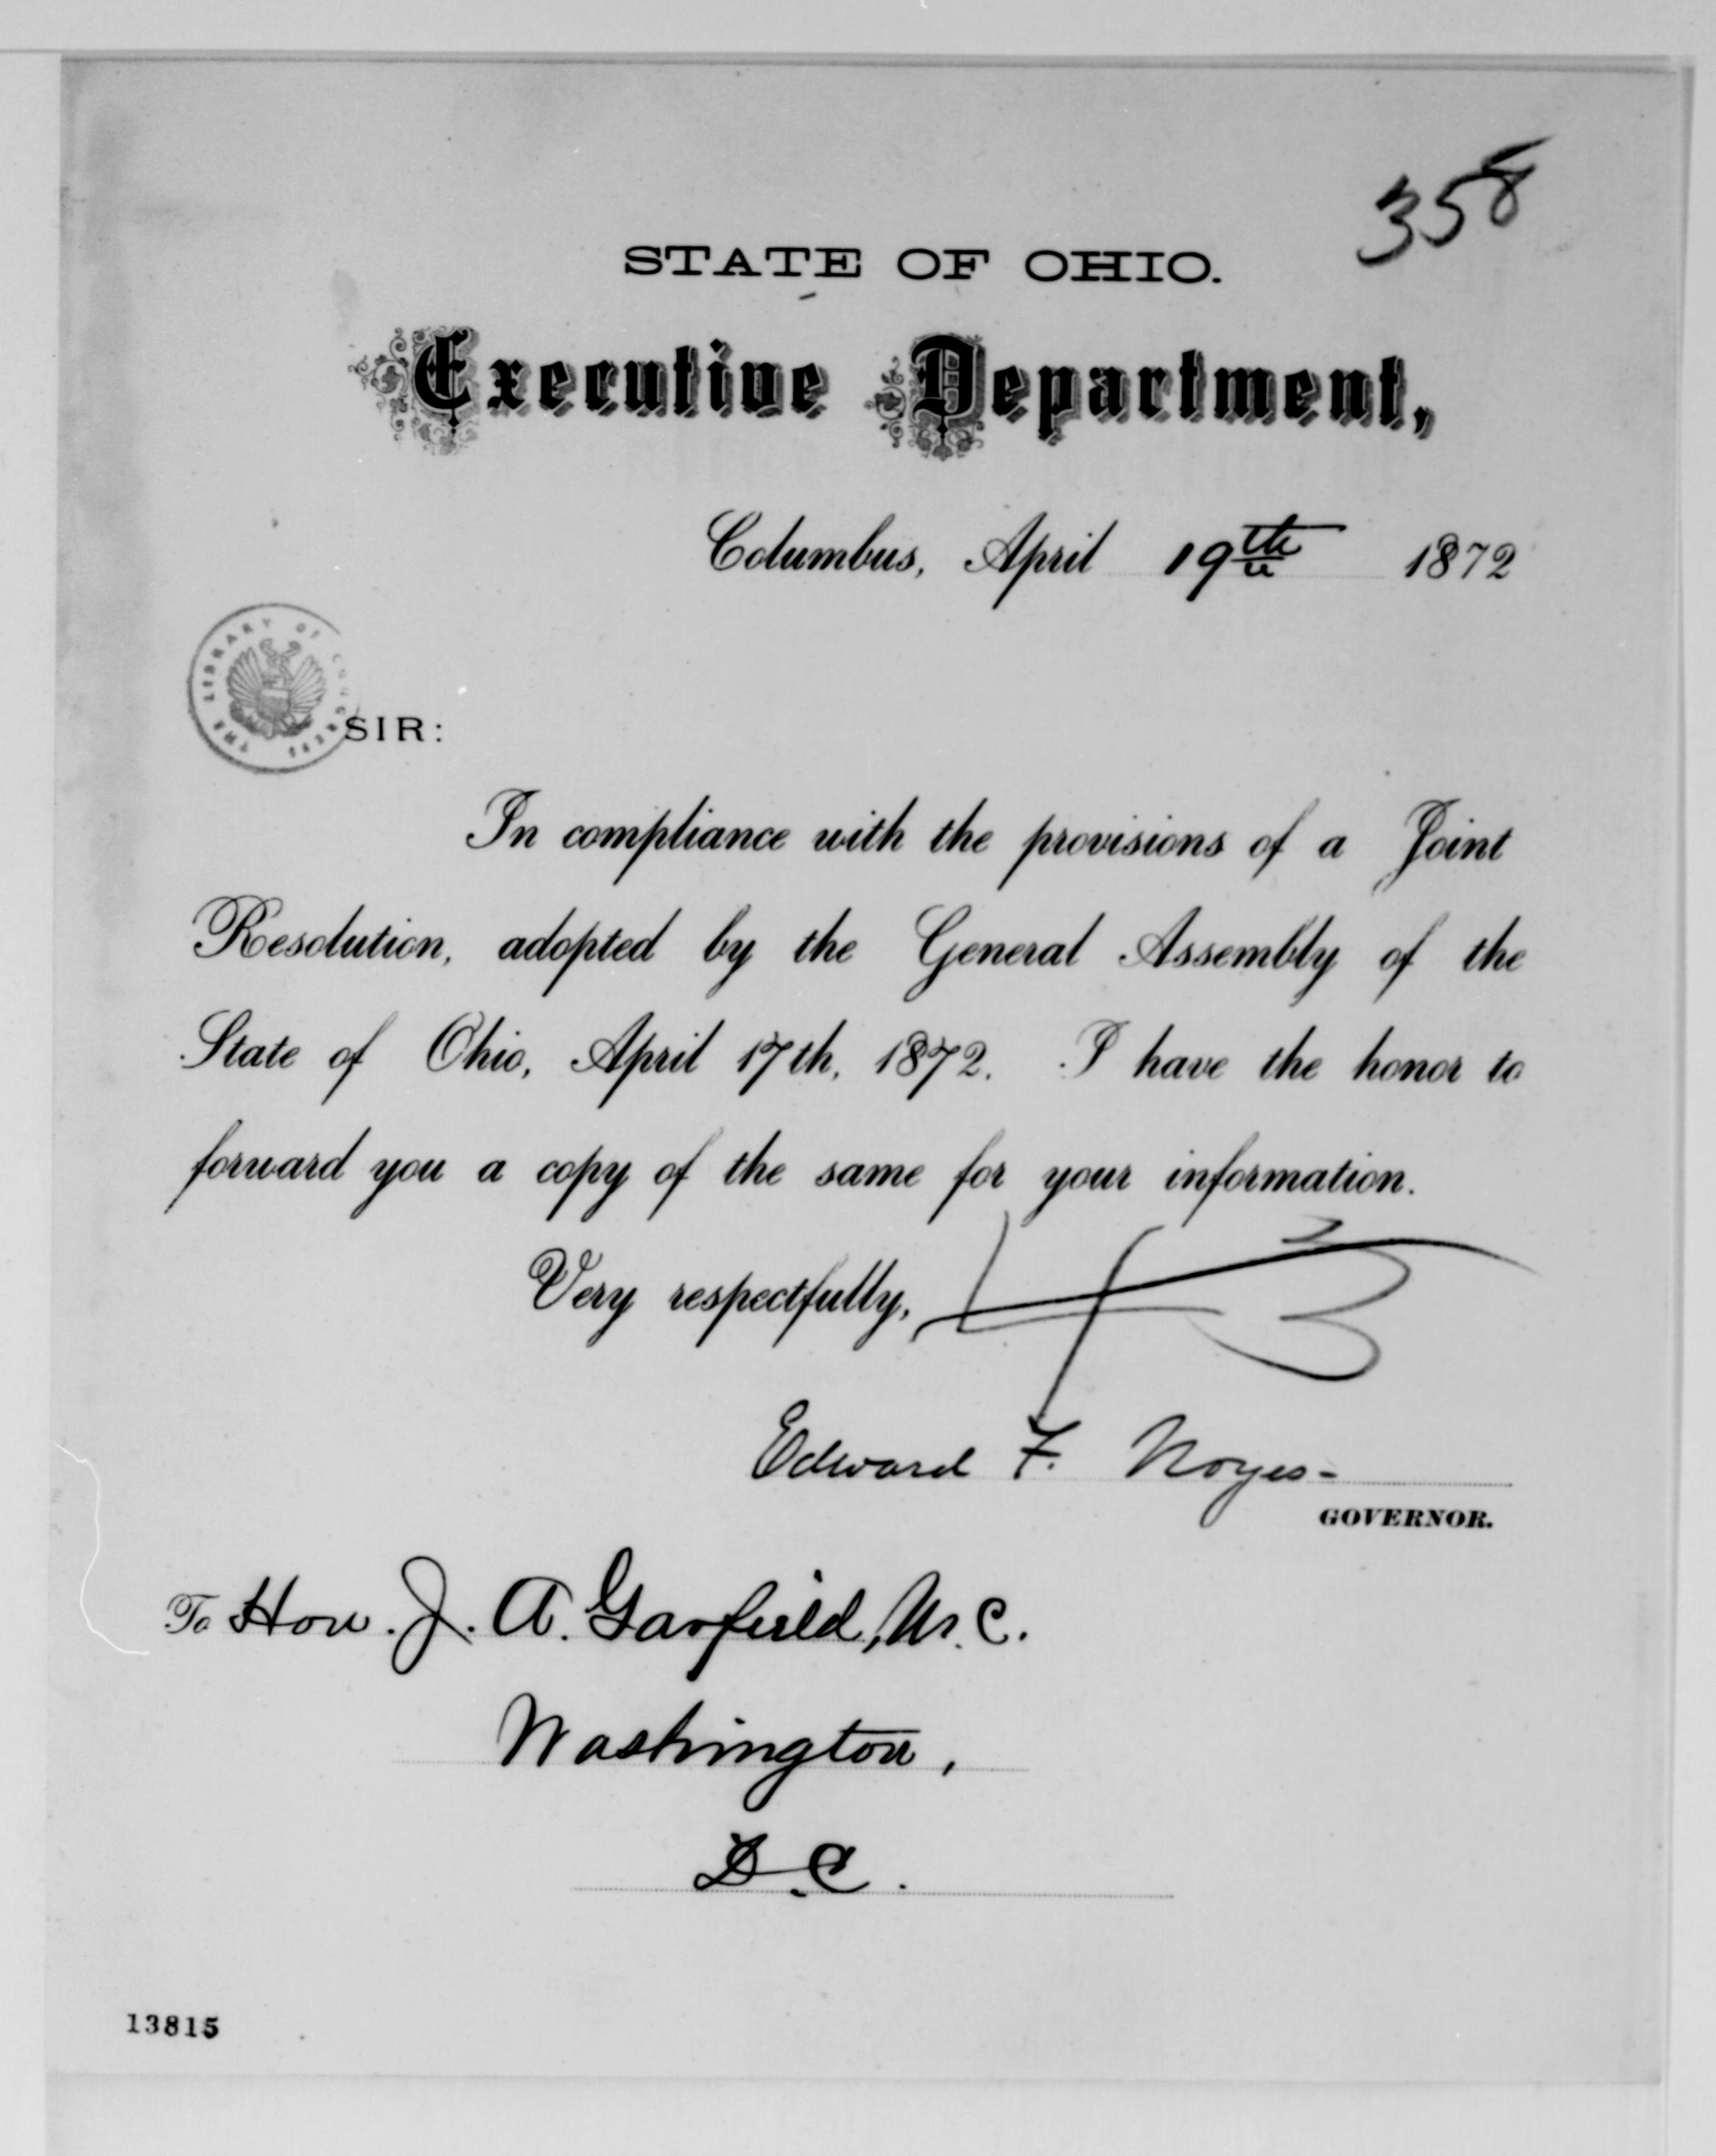 358
STATE OF OHIO.
Executive Department,
Columbus, April 19th 1872
THE LIBRARY OF CONGRESS
SIR:
In compliance with the provisions of a Joint
Resolution, adopted by the General Assembly of the
State of Ohio, April 17th, 1872. I have the honor to
forward you a copy of the same for your information.
Very respectfully,
Edward F. Noyes-
GOVERNOR.
To Hon. J. A. Garfield, M.C.
Washington,
D.C.
13815